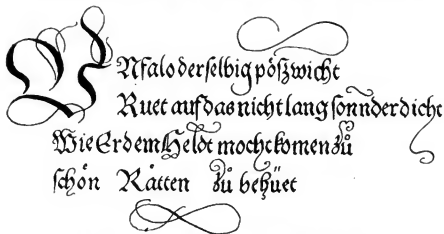 VNfalo der selbig pößwicht
Ruet auf das nicht lang sonnder dicht
Wie Er dem Heldt mocht komen zů
schön Råtten zů behüet